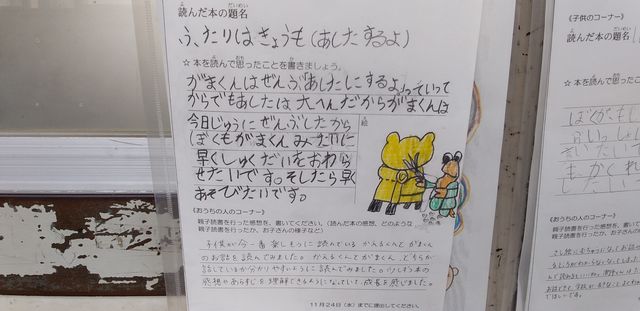 読んだ本の題名
ふたりはきょうも(あしたするよ)
☆本を読んで思ったことを書きましょう。
がまくんはぜんぶあしたにするよっていって
からでもあしたは大へんだからがまくんは
今日じゅうにぜんぶしたから
ぼくもがまくんみたいに
早くしゅくだいをおわら
せたいです。そしたら早く
あそびたいです。
絵
《おうちの人のコーナー》
親子読書を行った感想を、書いてください。(読んだ本の感想、どのような
親子読書を行ったか、お子さんの様子など)
子供が今一番楽しそうに読んでいる かえるくんと がまくん
のお話を読んでみました。かえるくんとがまくん、どちらが
話しているか分かりやすいように読んでみました。少しずつ本の
感想やあらすじを理解できるようになっていて、成長を感じました。
11月24日(水)までに提出してください。
《子供のコーナー》
読んだ本の題名
☆本を読んで思った
《おうちの人のコーナー》
親子読書を行った感想
親子読書を行ったか、